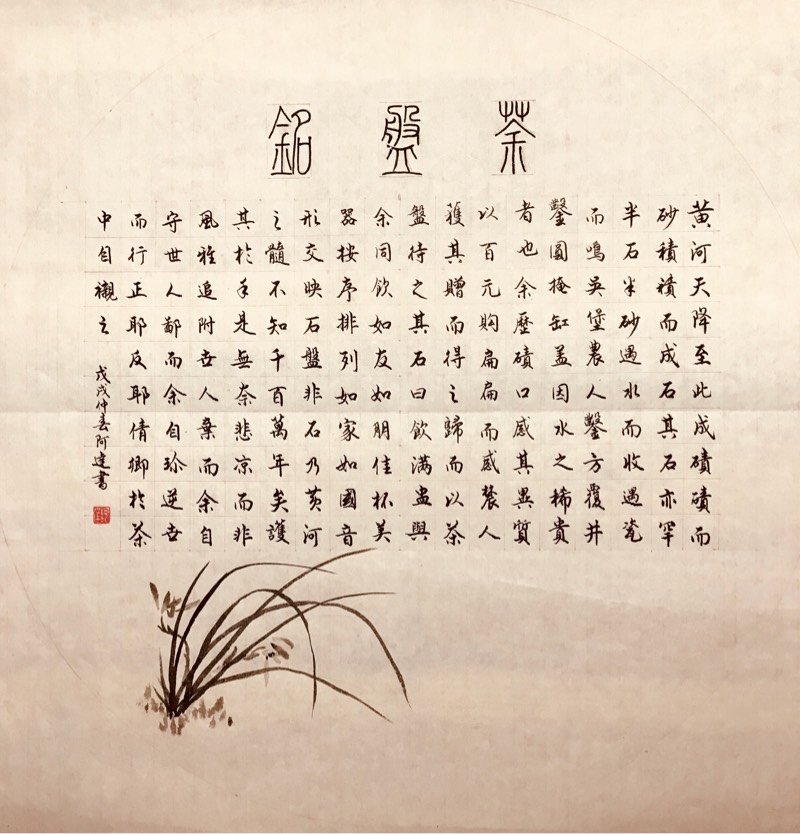 茶盤銘
黄河天降至此成磧磧而
砂積積而成石其石亦罕
半石半砂遇水而收遇瓷
而鳴吳堡農人鑿方覆井
鑿圓掩缸盖因水之稀貴
者也余歷磧口感其異質
以百元购扁扁而感農人
獲其贈而得之歸而以茶
盤待之其石曰飲满盅與
余同飲如友如朋佳杯美
器按序排列如家如國音
形交映石盤非石乃黄河
之髓不知千百萬年矣護
其於手是無奈悲凉而非
風雅追附世人棄而余自
守世人鄙而余自珍逆世
而行正耶反耶倩卿於茶
中自襯之
戊戌仲春阿達書